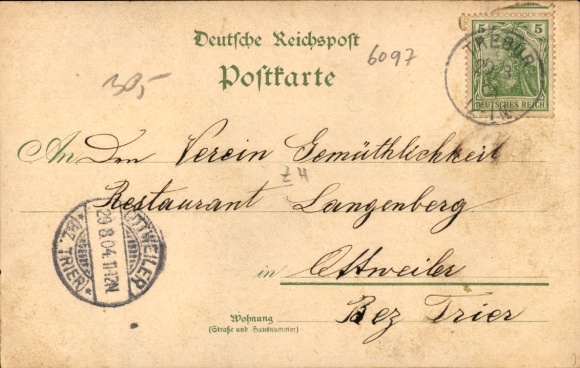 Deutsche Reichspost
Postkarte
30,-
6097
5 5
DEUTSCHES REICH
TREBUR
An Den Verein Gemüthlichkeit
Z H
Restaurant Langenberg
in Ottweiler
Bez Trier
Wohnung
(Straße und Hausnummer)
OTTWEILER
20.8.04.11-12N.
*(BZ. TRIER)*